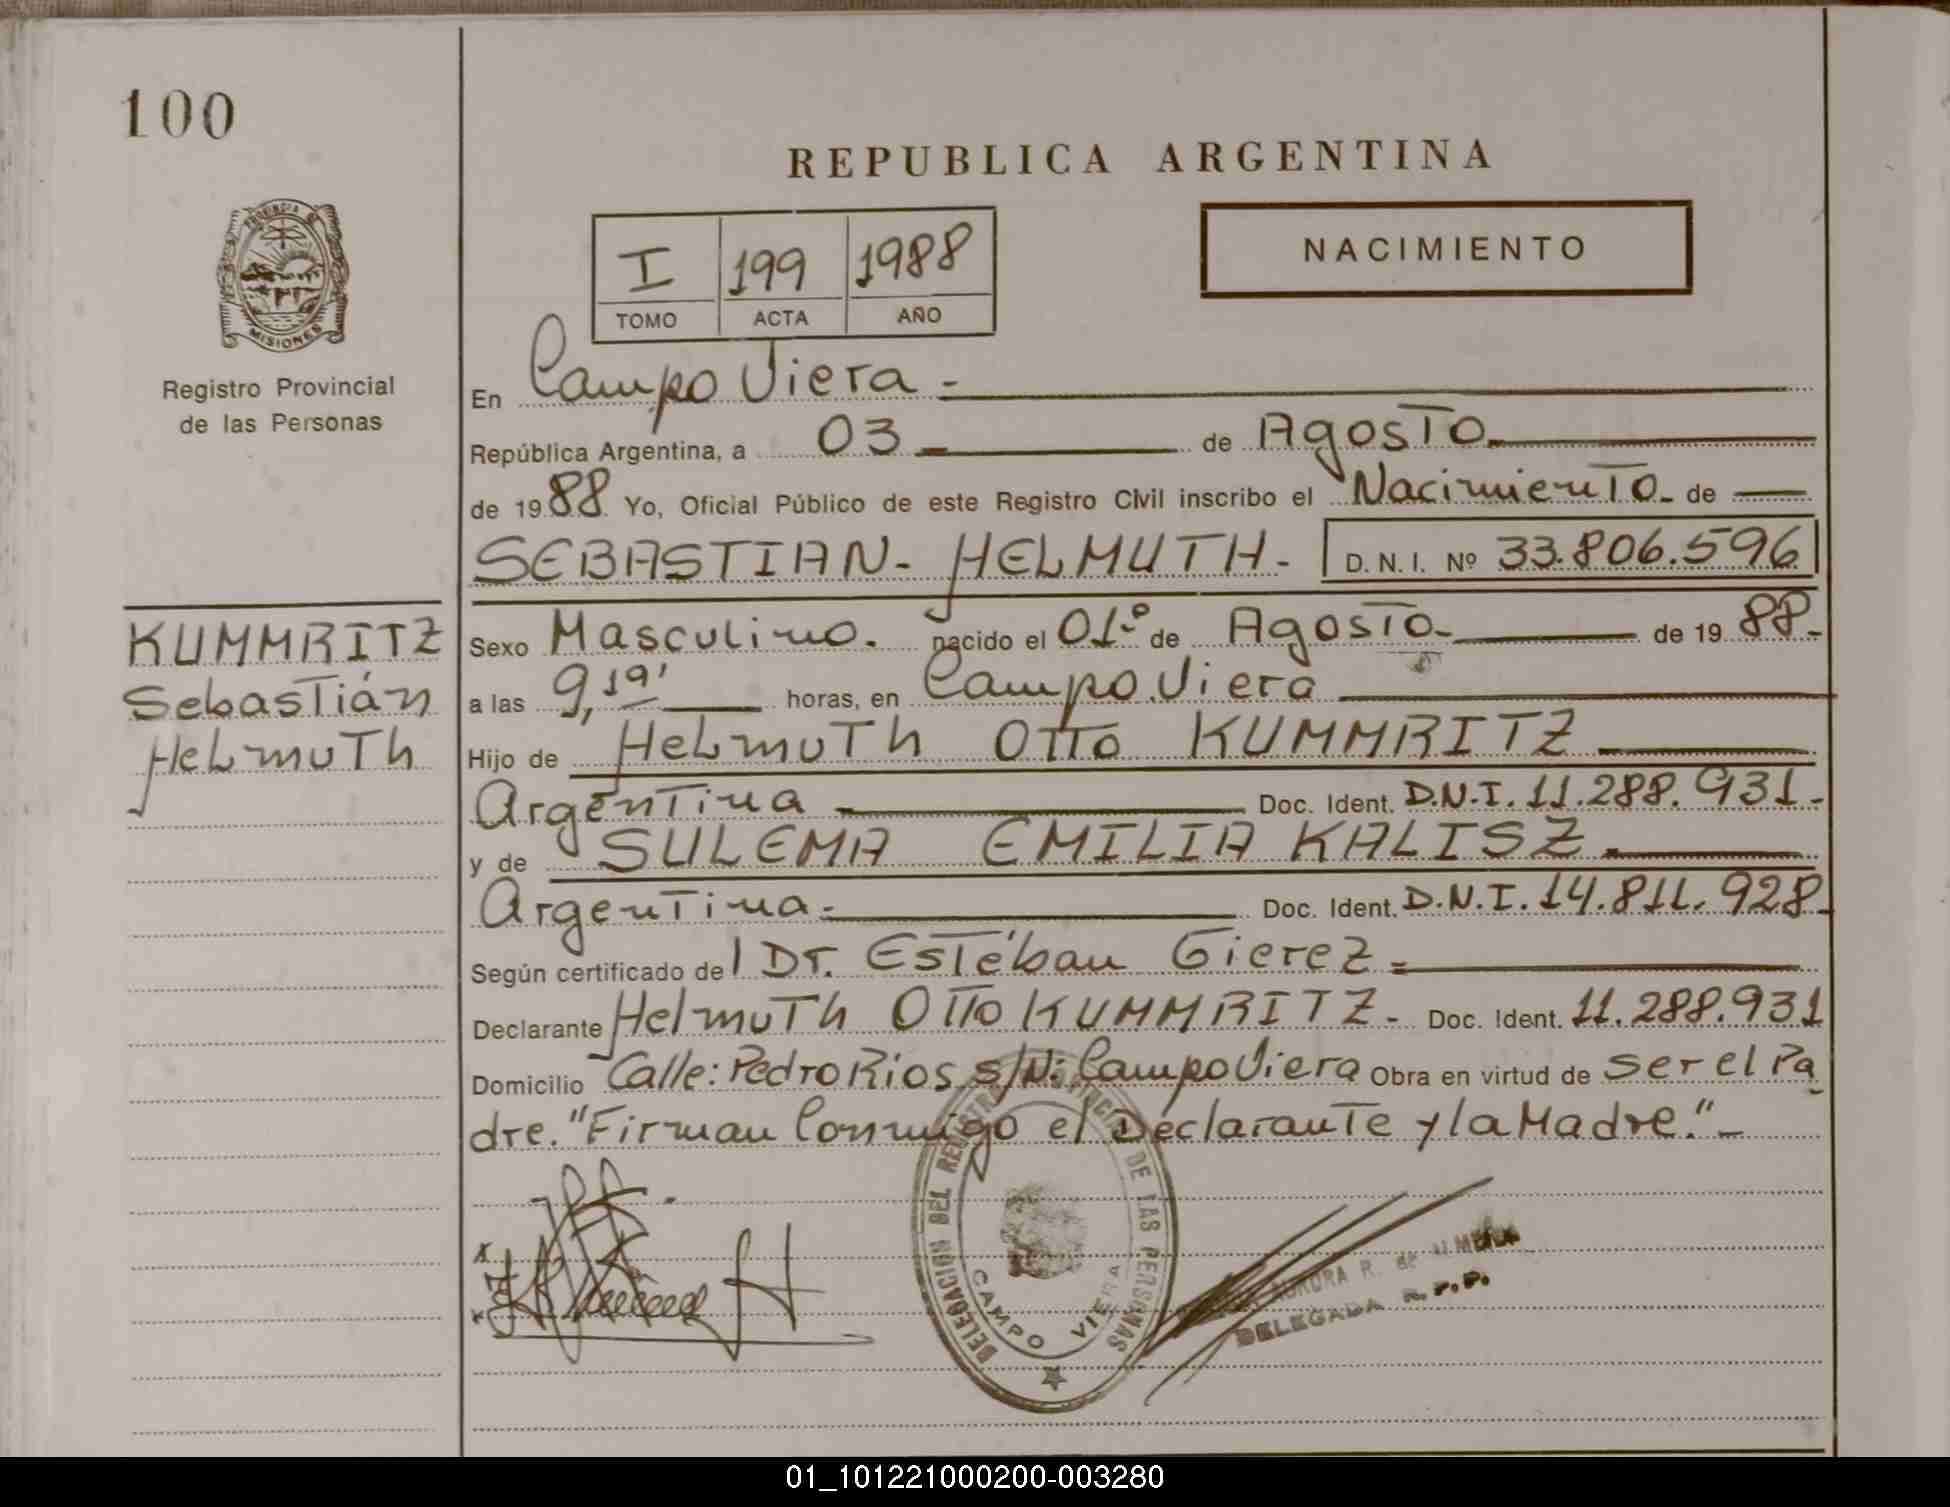 100
REPUBLICA ARGENTINA
PROVINCIA DE
MISIONES
Registro Provincial
de las Personas
I 199 1988
TOMO ACTA AÑO
NACIMIENTO
En Campo Viera -
República Argentina, a 03 de Agosto
de 1988 Yo, Oficial Público de este Registro Civil inscribo el Nacimiento de
SEBASTIAN - HELMUTH - D. N. I. Nº 33.806.596
KUMMRITZ
Sebastián
Helmuth
Sexo Masculino. nacido el 01º de Agosto - de 19 88 -
a las 9,19' horas, en Campo Viera
Hijo de Helmuth Otto KUMMRITZ
Argentina Doc. Ident. D.N.I. 11.288.931 -
y de SULEMA EMILIA KALISZ
Argentina - Doc. Ident. D.N.I. 14.811.928 -
Según certificado del Dr. Estéban Gierez =
Declarante Helmuth Otto KUMMRITZ - Doc. Ident. 11.288.931
Domicilio Calle: Pedro Rios s/N: Campo Viera Obra en virtud de ser el Pa
dre. "Firman Conmigo el Declarante y la Madre." -
DELEGACION DEL REGISTRO PROVINCIAL DE LAS PERSONAS
CAMPO VIERA
AURORA R. de
DELEGADA R.P.P.
01_101221000200-003280